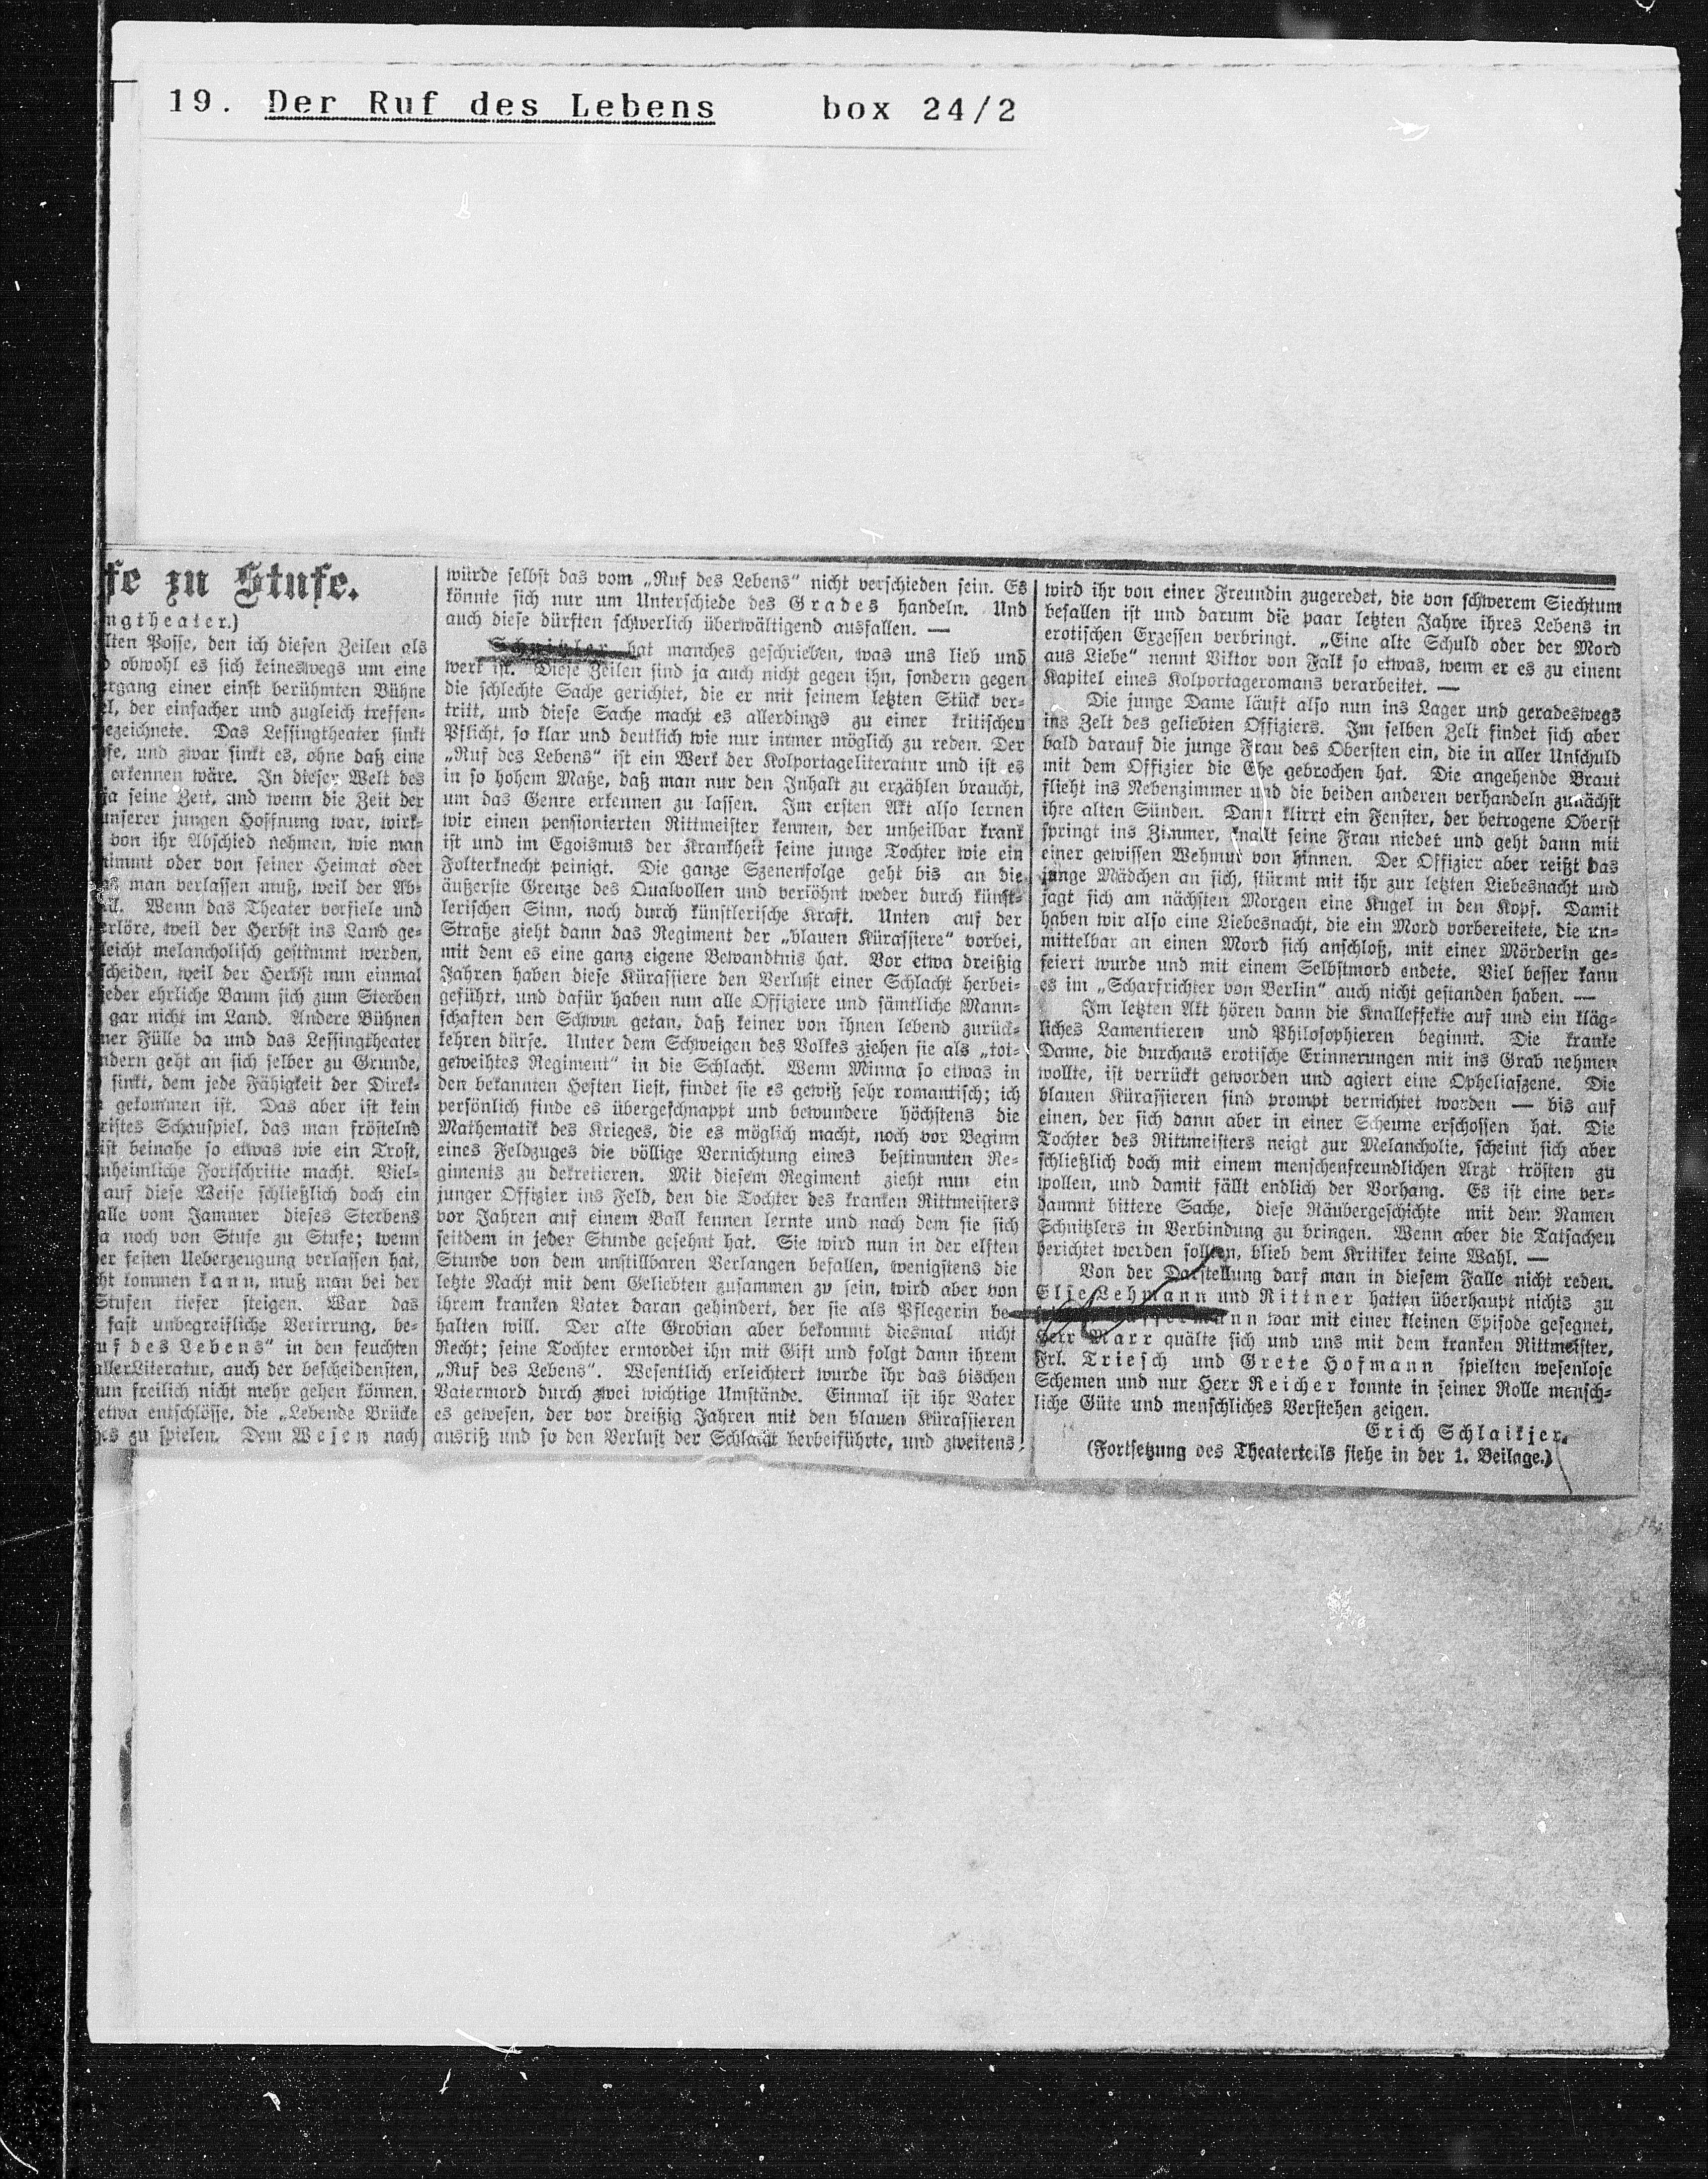 19. Der Ruf des Lebens box 24/2
fe zu Stufe.
ngtheater.)
lten Posse, den ich diesen Zeilen als
obwohl es sich keineswegs um eine
rgang einer einst berühmten Bühne
el, der einfacher und zugleich treffen-
ezeichnete. Das Lessingtheater sinkt
fe, und zwar sinkt es, ohne daß eine
erkennen wäre. In dieser Welt des
ja seine Zeit, und wenn die Zeit der
unserer jungen Hoffnung war, wirk-
von ihr Abschied nehmen, wie man
nimmt oder von seiner Heimat oder
man verlassen muß, weil der Ab-
Wenn das Theater verfiele und
erlöre, weil der Herbst ins Land ge-
leicht melancholisch gestimmt werden,
scheiden, weil der Herbst nun einmal
jeder ehrliche Baum sich zum Sterben
gar nicht im Land. Andere Bühnen
ner Fülle da und das Lessingtheater
ndern geht an sich selber zu Grunde,
sinkt, dem jede Fähigkeit der Direk-
gekommen ist. Das aber ist kein
ristes Schauspiel, das man fröstelnd
ist beinahe so etwas wie ein Trost,
nheimliche Fortschritte macht. Viel-
auf diese Weise schließlich doch ein
alle vom Jammer dieses Sterbens
a noch von Stufe zu Stufe; wenn
er festen Ueberzeugung verlassen hat,
ht kommen kann, muß man bei der
Stufen tiefer steigen. War das
fast unbegreifliche Verirrung, be-
uf des Lebens“ in den feuchten
aller Literatur, auch der bescheidensten,
un freilich nicht mehr gehen können.
etwa entschlösse, die „Lebende Brücke
es zu spielen. Dem Wesen nach
würde selbst das vom „Ruf des Lebens“ nicht verschieden sein. Es
könnte sich nur um Unterschiede des Grades handeln. Und
auch diese dürften schwerlich überwältigend ausfallen. —
Schnitzler hat manches geschrieben, was uns lieb und
wert ist. Diese Zeilen sind ja auch nicht gegen ihn, sondern gegen
die schlechte Sache gerichtet, die er mit seinem letzten Stück ver-
tritt, und diese Sache macht es allerdings zu einer kritischen
Pflicht, so klar und deutlich wie nur immer möglich zu reden. Der
„Ruf des Lebens“ ist ein Werk der Kolportageliteratur und ist es
in so hohem Maße, daß man nur den Inhalt zu erzählen braucht,
um das Genre erkennen zu lassen. Im ersten Akt also lernen
wir einen pensionierten Rittmeister kennen, der unheilbar krank
ist und im Egoismus der Krankheit seine junge Tochter wie ein
Folterknecht peinigt. Die ganze Szenenfolge geht bis an die
äußerste Grenze des Qualvollen und versöhnt weder durch künst-
lerischen Sinn, noch durch künstlerische Kraft. Unten auf der
Straße zieht dann das Regiment der „blauen Kürassiere“ vorbei,
mit dem es eine ganz eigene Bewandtnis hat. Vor etwa dreißig
Jahren haben diese Kürassiere den Verlust einer Schlacht herbei-
geführt, und dafür haben nun alle Offiziere und sämtliche Mann-
schaften den Schwur getan, daß keiner von ihnen lebend zurück-
kehren dürfe. Unter dem Schweigen des Volkes ziehen sie als „tot-
geweihtes Regiment“ in die Schlacht. Wenn Minna so etwas in
den bekannten Heften liest, findet sie es gewiß sehr romantisch; ich
persönlich finde es übergeschnappt und bewundere höchstens die
Mathematik des Krieges, die es möglich macht, noch vor Beginn
eines Feldzuges die völlige Vernichtung eines bestimmten Re-
giments zu dekretieren. Mit diesem Regiment zieht nun ein
junger Offizier ins Feld, den die Tochter des kranken Rittmeisters
vor Jahren auf einem Ball kennen lernte und nach dem sie sich
seitdem in jeder Stunde gesehnt hat. Sie wird nun in der elften
Stunde von dem unstillbaren Verlangen befallen, wenigstens die
letzte Nacht mit dem Geliebten zusammen zu sein, wird aber von
ihrem kranken Vater daran gehindert, der sie als Pflegerin be-
halten will. Der alte Grobian aber bekommt diesmal nicht
Recht; seine Tochter ermordet ihn mit Gift und folgt dann ihrem
„Ruf des Lebens“. Wesentlich erleichtert wurde ihr das bischen
Vatermord durch zwei wichtige Umstände. Einmal ist ihr Vater
es gewesen, der vor dreißig Jahren mit den blauen Kürassieren
ausriß und so den Verlust der Schlacht herbeiführte, und zweitens
wird ihr von einer Freundin zugeredet, die von schwerem Siechtum
befallen ist und darum die paar letzten Jahre ihres Lebens in
erotischen Exzessen verbringt. „Eine alte Schuld oder der Mord
aus Liebe“ nennt Viktor von Falk so etwas, wenn er es zu einem
Kapitel eines Kolportageromans verarbeitet. —
Die junge Dame läuft also nun ins Lager und geradeswegs
ins Zelt des geliebten Offiziers. Im selben Zelt findet sich aber
bald darauf die junge Frau des Obersten ein, die in aller Unschuld
mit dem Offizier die Ehe gebrochen hat. Die angehende Braut
flieht ins Nebenzimmer und die beiden anderen verhandeln zunächst
ihre alten Sünden. Dann klirrt ein Fenster, der betrogene Oberst
springt ins Zimmer, knallt seine Frau nieder und geht dann mit
einer gewissen Wehmut von hinnen. Der Offizier aber reißt das
junge Mädchen an sich, stürmt mit ihr zur letzten Liebesnacht und
jagt sich am nächsten Morgen eine Kugel in den Kopf. Damit
haben wir also eine Liebesnacht, die ein Mord vorbereitete, die un-
mittelbar an einen Mord sich anschloß, mit einer Mörderin ge-
feiert wurde und mit einem Selbstmord endete. Viel besser kann
es im „Scharfrichter von Berlin“ auch nicht gestanden haben. —
Im letzten Akt hören dann die Knalleffekte auf und ein kläg-
liches Lamentieren und Philosophieren beginnt. Die kranke
Dame, die durchaus erotische Erinnerungen mit ins Grab nehmen
wollte, ist verrückt geworden und agiert eine Opheliaszene. Die
blauen Kürassieren sind prompt vernichtet worden — bis auf
einen, der sich dann aber in einer Scheune erschossen hat. Die
Tochter des Rittmeisters neigt zur Melancholie, scheint sich aber
schließlich doch mit einem menschenfreundlichen Arzt trösten zu
wollen, und damit fällt endlich der Vorhang. Es ist eine ver-
dammt bittere Sache, diese Räubergeschichte mit dem Namen
Schnitzlers in Verbindung zu bringen. Wenn aber die Tatsachen
berichtet werden sollen, blieb dem Kritiker keine Wahl. —
Von der Darstellung darf man in diesem Falle nicht reden.
Else Lehmann und Rittner hatten überhaupt nichts zu
mann war mit einer kleinen Episode gesegnet,
Herr Marr quälte sich und uns mit dem kranken Rittmeister,
Frl. Triesch und Grete Hofmann spielten wesenlose
Schemen und nur Herr Reicher konnte in seiner Rolle mensch-
liche Güte und menschliches Verstehen zeigen.
Erich Schlaikjer.
(Fortsetzung des Theaterteils siehe in der 1. Beilage.)